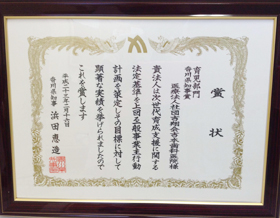 賞状
育児部門
香川県知事賞
医療法人社団吉翔会吉本歯科医院様
貴法人は次世代育成支援に関する
法定基準を上回る一般事業主行動
計画を策定しその目標に対して
顕著な実績を挙げられましたので
これを賞します
平成二十三年二月十六日
香川県知事 浜田恵造